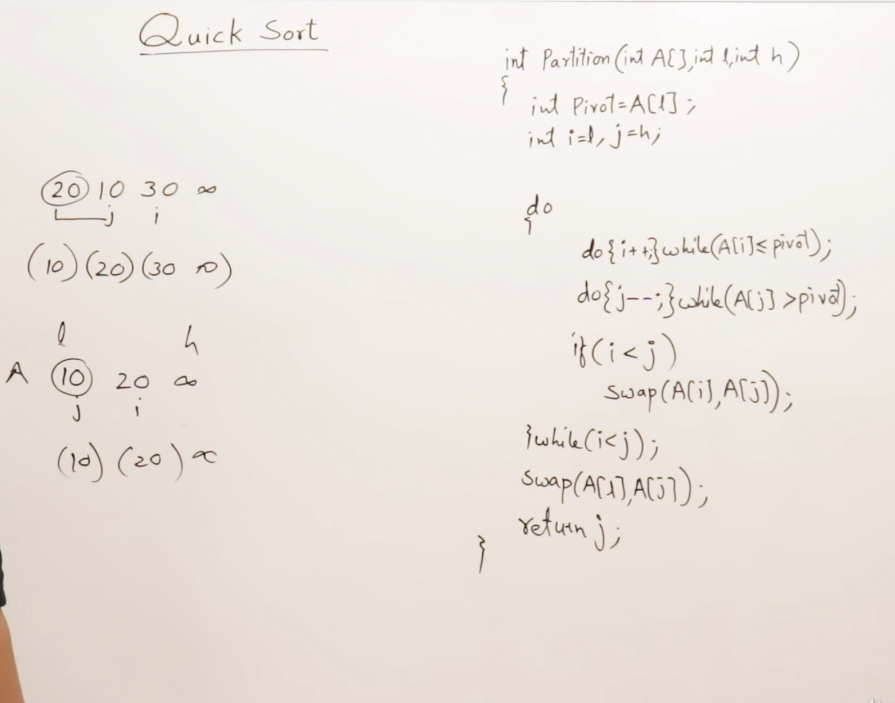 Quick Sort
20 10 30 ∞
j i
(10) (20) (30 ∞)
l h
A 10 20 ∞
j i
(10) (20) ∞
int Partition(int A[], int l, int h)
{
int Pivot=A[l];
int i=l, j=h;
do
{
do{i++;}while(A[i]≤pivot);
do{j--;}while(A[j]>pivot);
if(i<j)
swap(A[i],A[j]);
}while(i<j);
swap(A[l],A[j]);
return j;
}